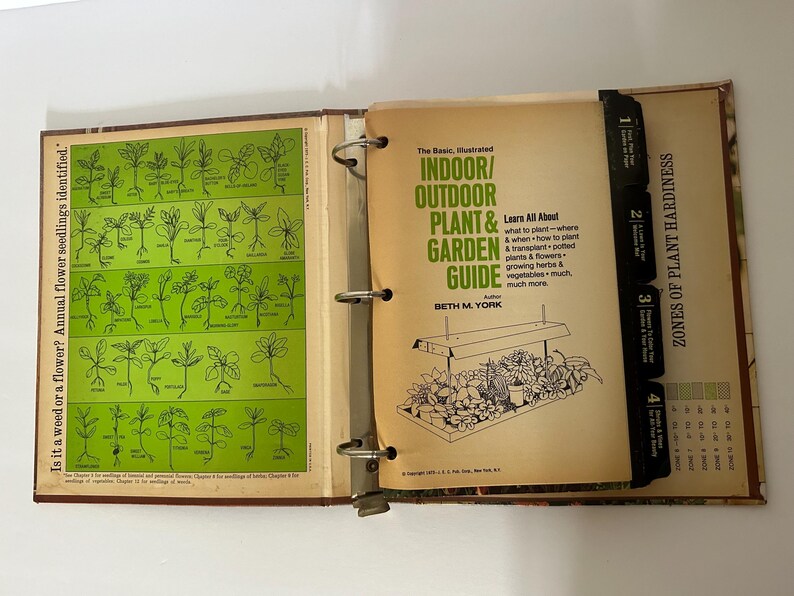 Is it a weed or a flower? Annual flower seedlings identified.*
AGERATUM
SWEET ALYSSUM
ASTER
BABY BLUE-EYES
BABY'S BREATH
BACHELOR'S BUTTON
BELLS-OF-IRELAND
BLACK-EYED SUSAN VINE
CLEOME
COLEUS
COSMOS
DAHLIA
DIANTHUS
FOUR-O'CLOCK
GAILLARDIA
GLOBE AMARANTH
HOLLYHOCK
IMPATIENS
LARKSPUR
LOBELIA
MARIGOLD
MORNING-GLORY
NASTURTIUM
NICOTIANA
NIGELLA
PETUNIA
PHLOX
POPPY
PORTULACA
SAGE
SNAPDRAGON
STRAWFLOWER
SWEET PEA
SWEET WILLIAM
TITHONIA
VERBENA
VINCA
ZINNIA
*See Chapter 3 for seedlings of biennial and perennial flowers; Chapter 8 for seedlings of herbs; Chapter 9 for
seedlings of vegetables; Chapter 12 for seedlings of weeds.
The Basic, Illustrated
INDOOR/
OUTDOOR
PLANT &
GARDEN
GUIDE
Learn All About
what to plant—where
& when • how to plant
& transplant • potted
plants & flowers •
growing herbs &
vegetables • much,
much more.
Author
BETH M. YORK
© Copyright 1973—J. E. C. Pub. Corp., New York, N.Y.
1
First, Plan Your
Garden on Paper
2
A Lawn Is Your
Welcome Mat
3
Flowers To Color Your
Garden & Your House
4
Shrubs & Vines
for All-Year Beauty
ZONES OF PLANT HARDINESS